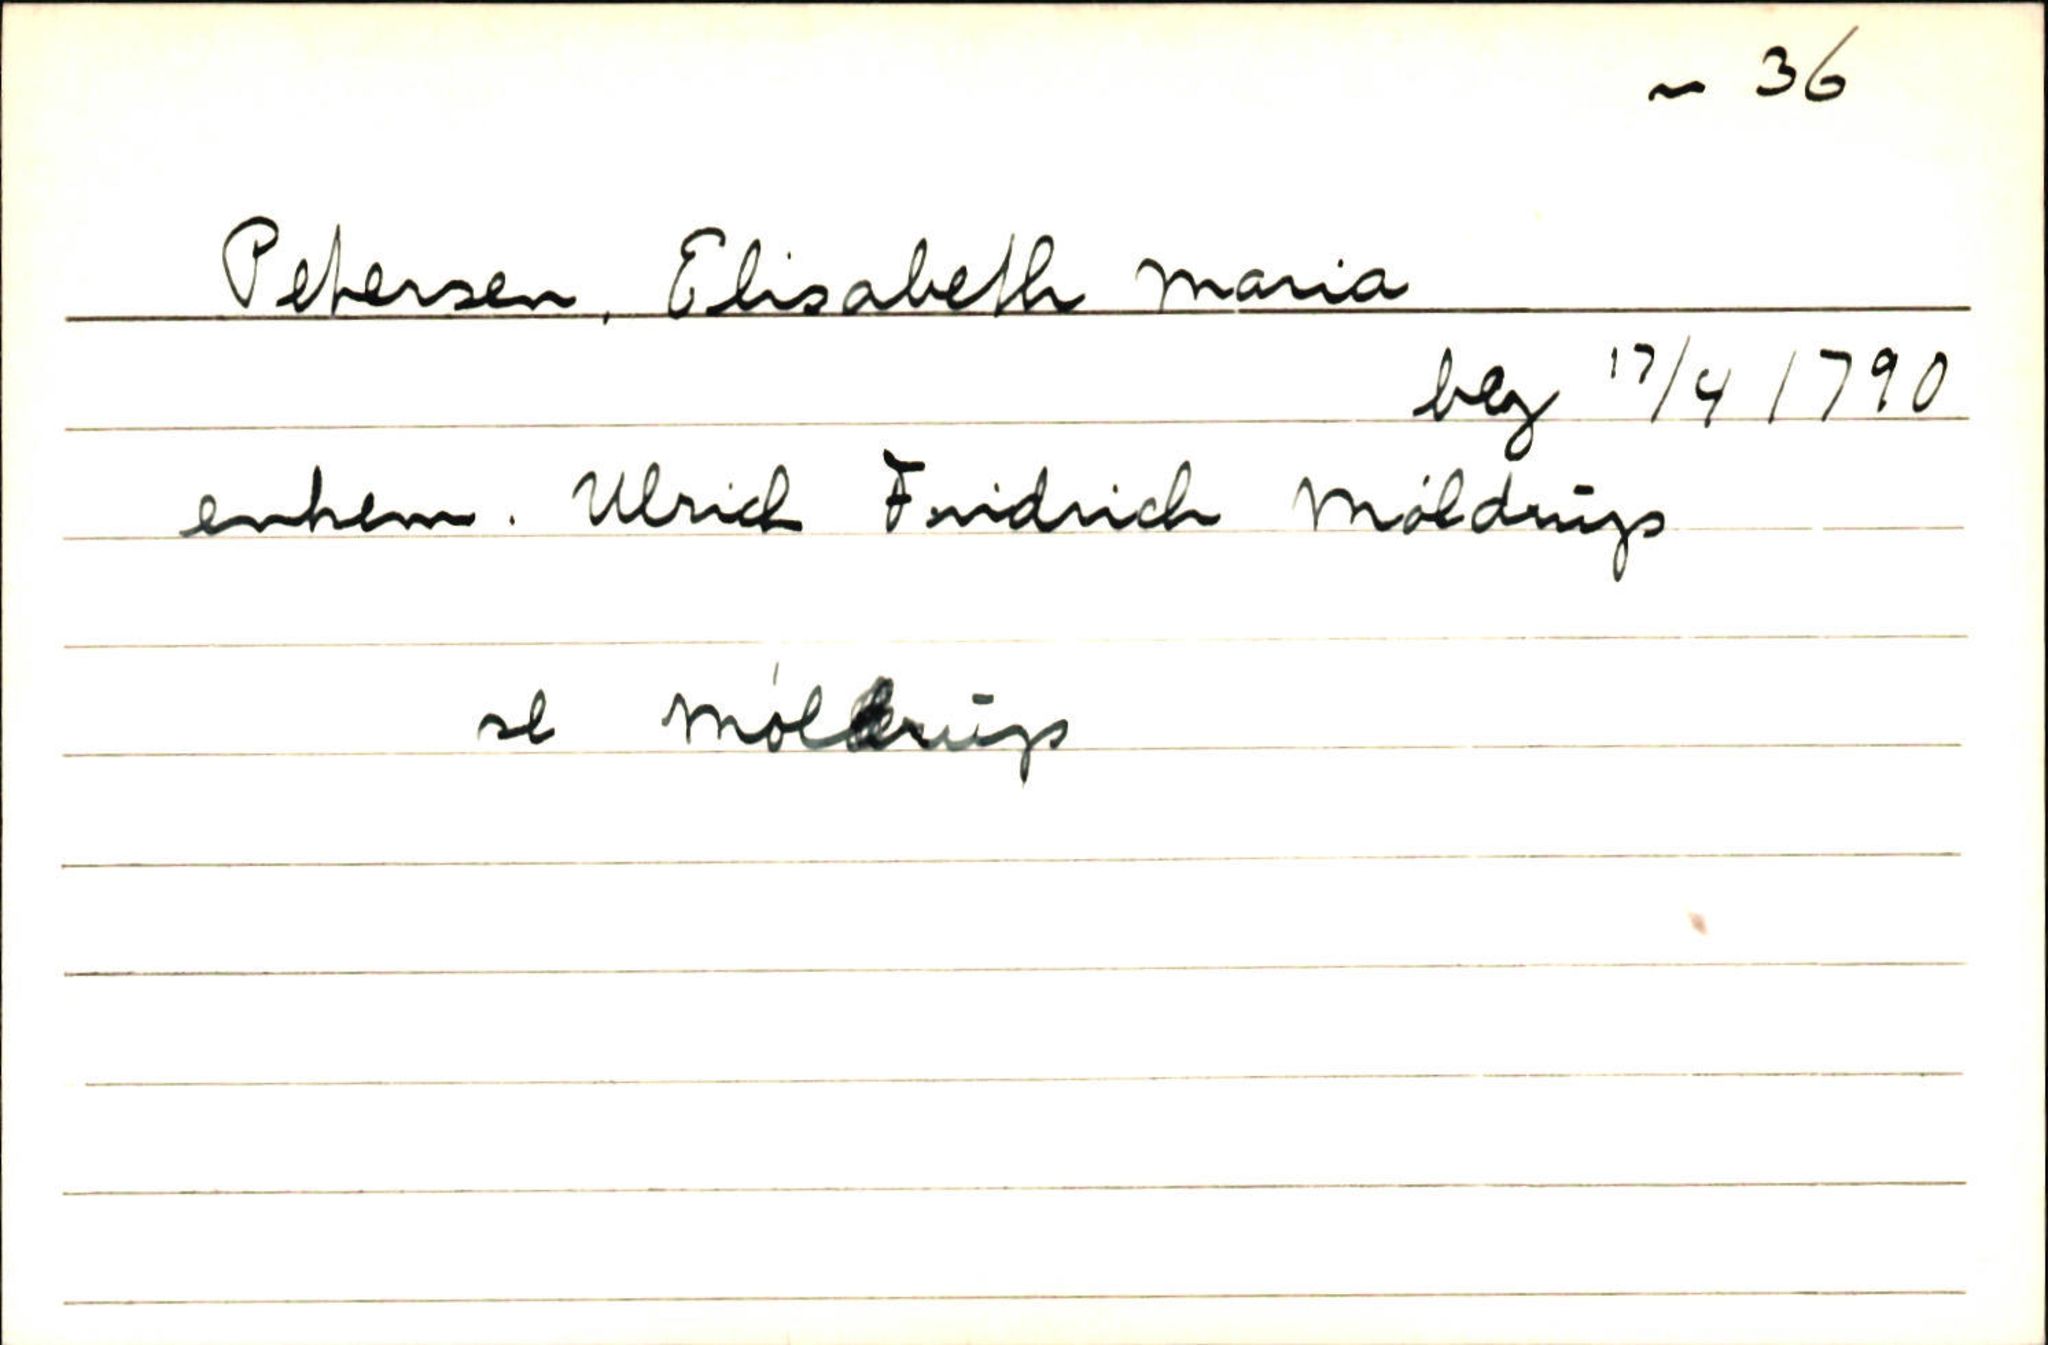 ~ 36
Petersen, Elisabeth Maria
beg 17/4 1790
enkem. Ulrich Fridrich Möldrup
se Möldrup